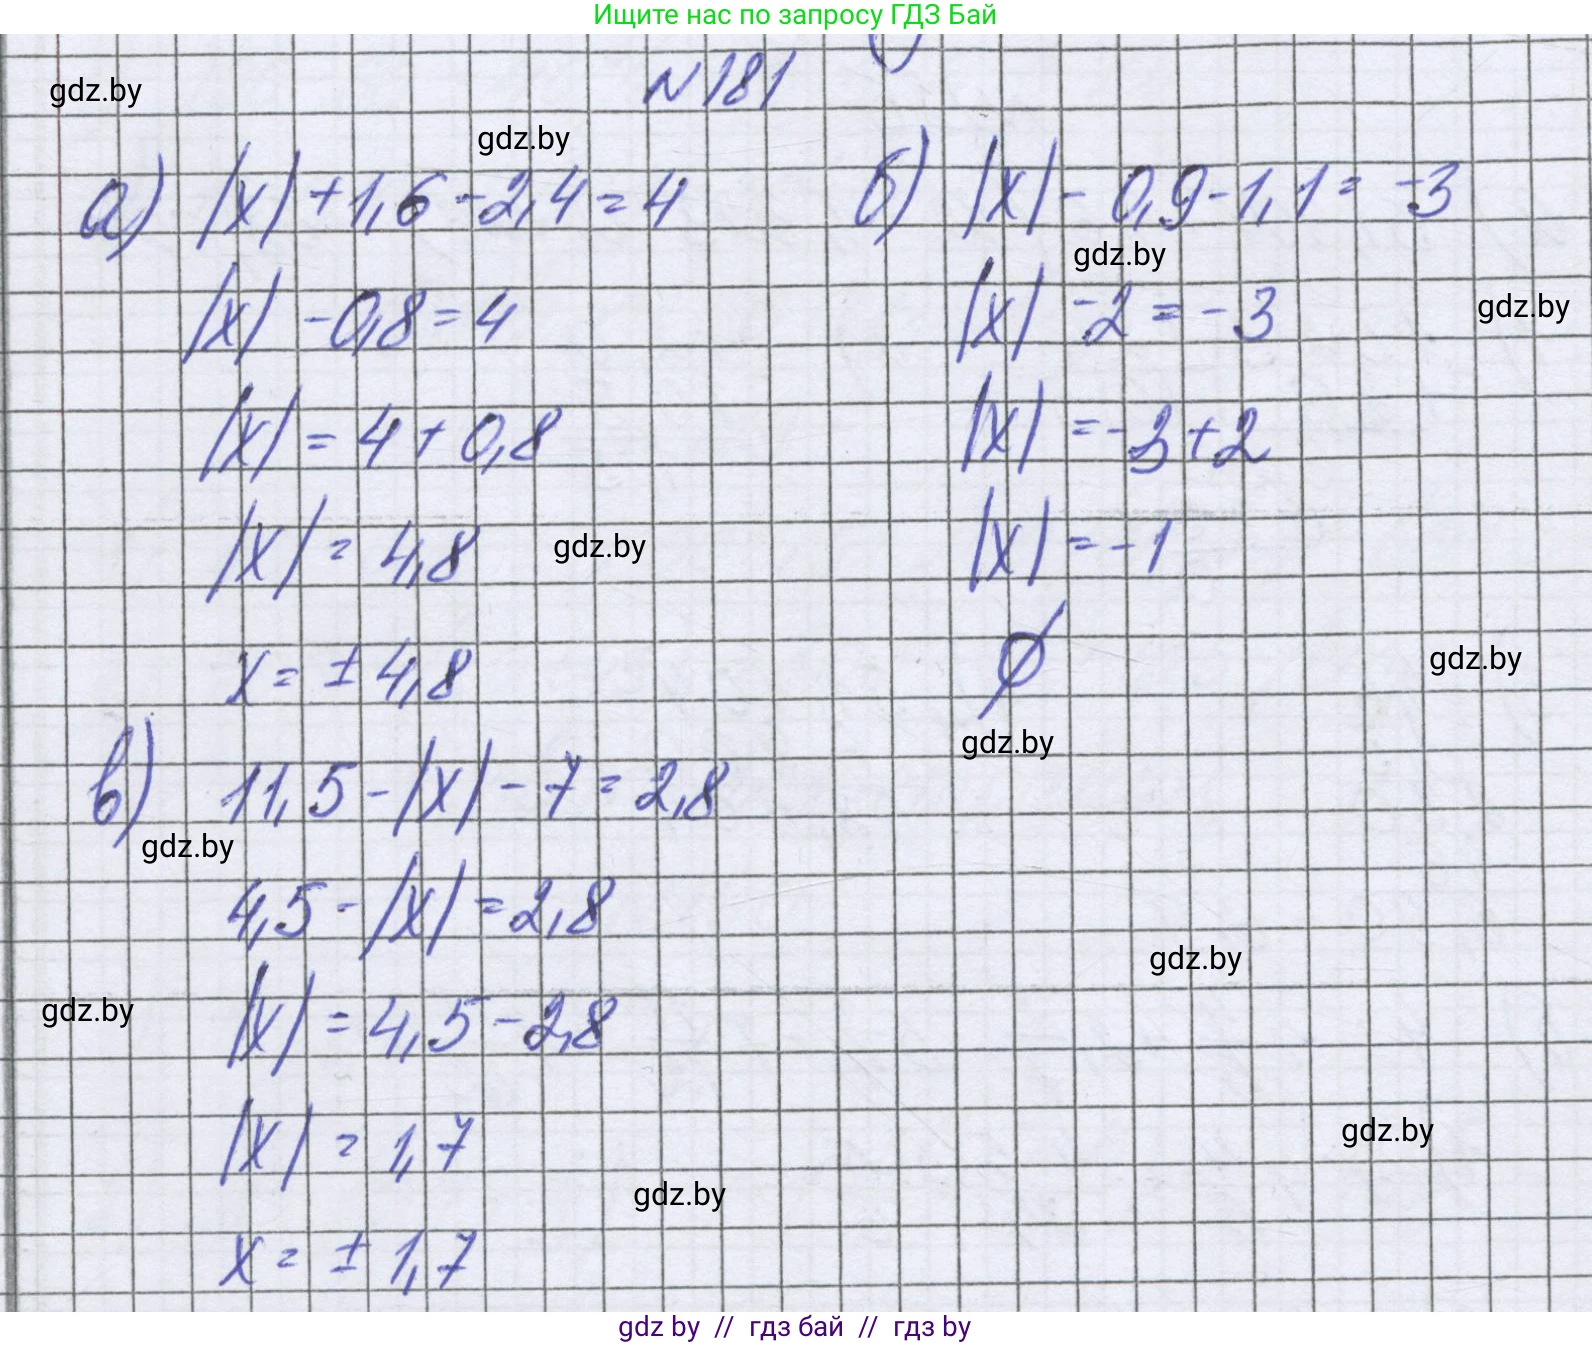 Ищите нас по запросу ГДЗ Бай
N181
gdz.by
gdz.by
а) |x| + 1,6 - 2,4 = 4
|x| - 0,8 = 4
|x| = 4 + 0,8
|x| = 4,8
gdz.by
x = ± 4,8
б) |x| - 0,9 - 1,1 = -3
gdz.by
|x| - 2 = -3
gdz.by
|x| = -3 + 2
|x| = -1
∅
gdz.by
gdz.by
в) 11,5 - |x| - 7 = 2,8
gdz.by
4,5 - |x| = 2,8
gdz.by
|x| = 4,5 - 2,8
gdz.by
|x| = 1,7
gdz.by
gdz.by
x = ± 1,7
gdz by // гдз бай // гдз by